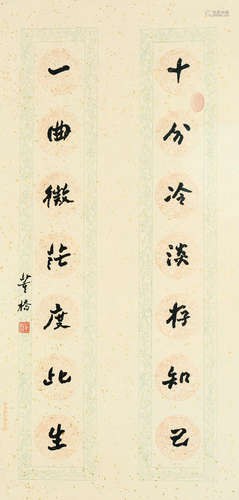 十分冷淡存知己
一曲微茫度此生
董橋